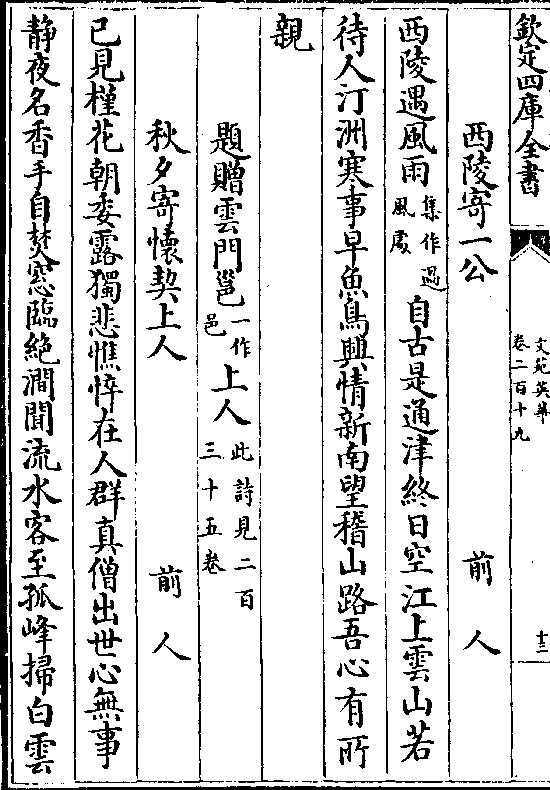 欽定四庫全書
文苑英華
卷二百十九
十三
西陵寄一公
前人
西陵遇風雨集作過風處自古是通津終日空江上雲山若
待人汀洲寒事早魚鳥興情新南望稽山路吾心有所
親
題贈雲門邕一作邑上人此詩見二百三十五卷
秋夕寄懷契上人
前人
已見槿花朝委露獨悲憔悴在人群真僧出世心無事
静夜名香手自焚窓臨絶澗聞流水客至孤峰掃白雲